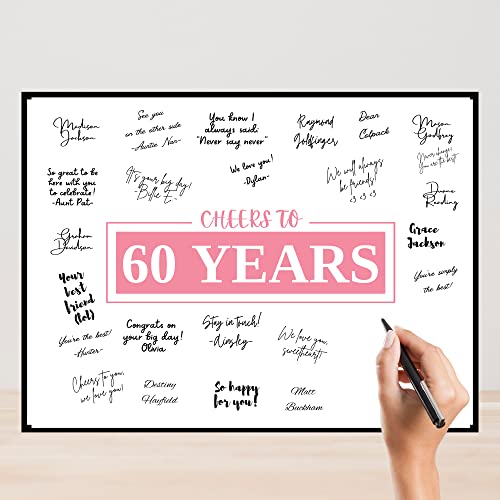 Madison
Jackson
See you
on the other side
-Auntie Nan-
You know I
always said:
"Never say never"
Raymond
Golfinger
Dear
Colpack
Mason
Godfray
Never change!
You're the best
So great to be
here with you
to celebrate!
-Aunt Pat-
It's your big day!
Billie E.
We love you!
-Dylan-
We will always
be friends!
<3 <3 <3
Duane
Reading
Graham
Davidson
CHEERS TO
60 YEARS
Grace
Jackson
Your
best
friend
(lol)
You're simply
the best!
You're the best!
-Hunter-
Congrats on
your big day!
Olivia
Stay in touch!
-Ainsley-
We love you,
sweetheart!
Cheers to you,
we love you!
Destiny
Hayfield
So happy
for you!
Matt
Buckham